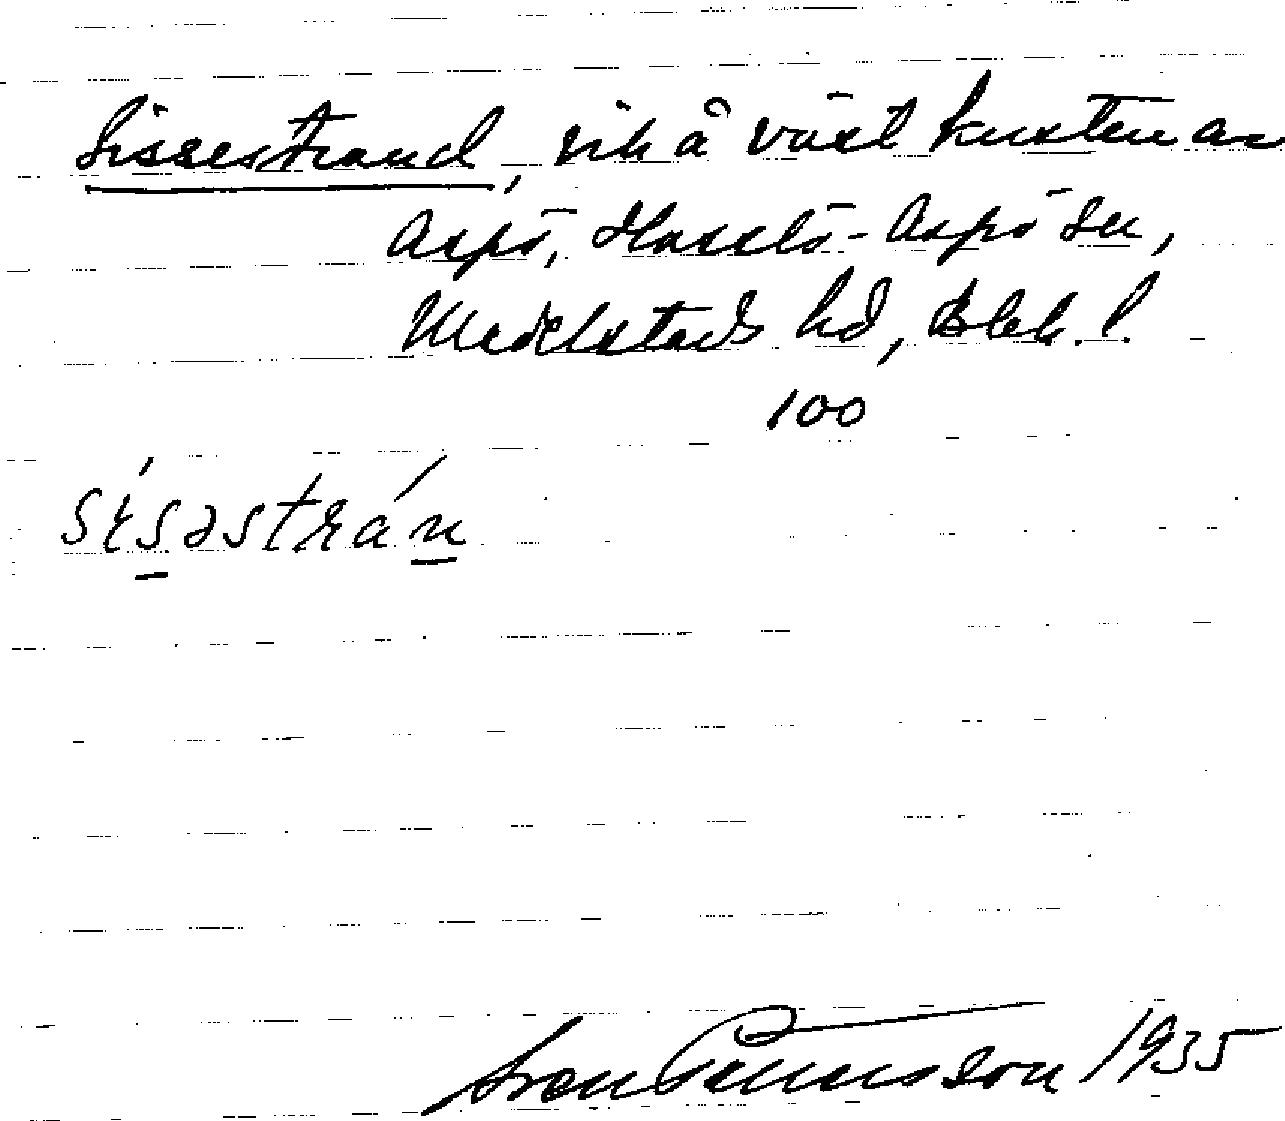 Sissestrand, vik å västkusten av
Aspö, Hasslö-Aspö sn,
Medelstads hd, Blek. l.
100
sísəstrán
Sven Benson 1935